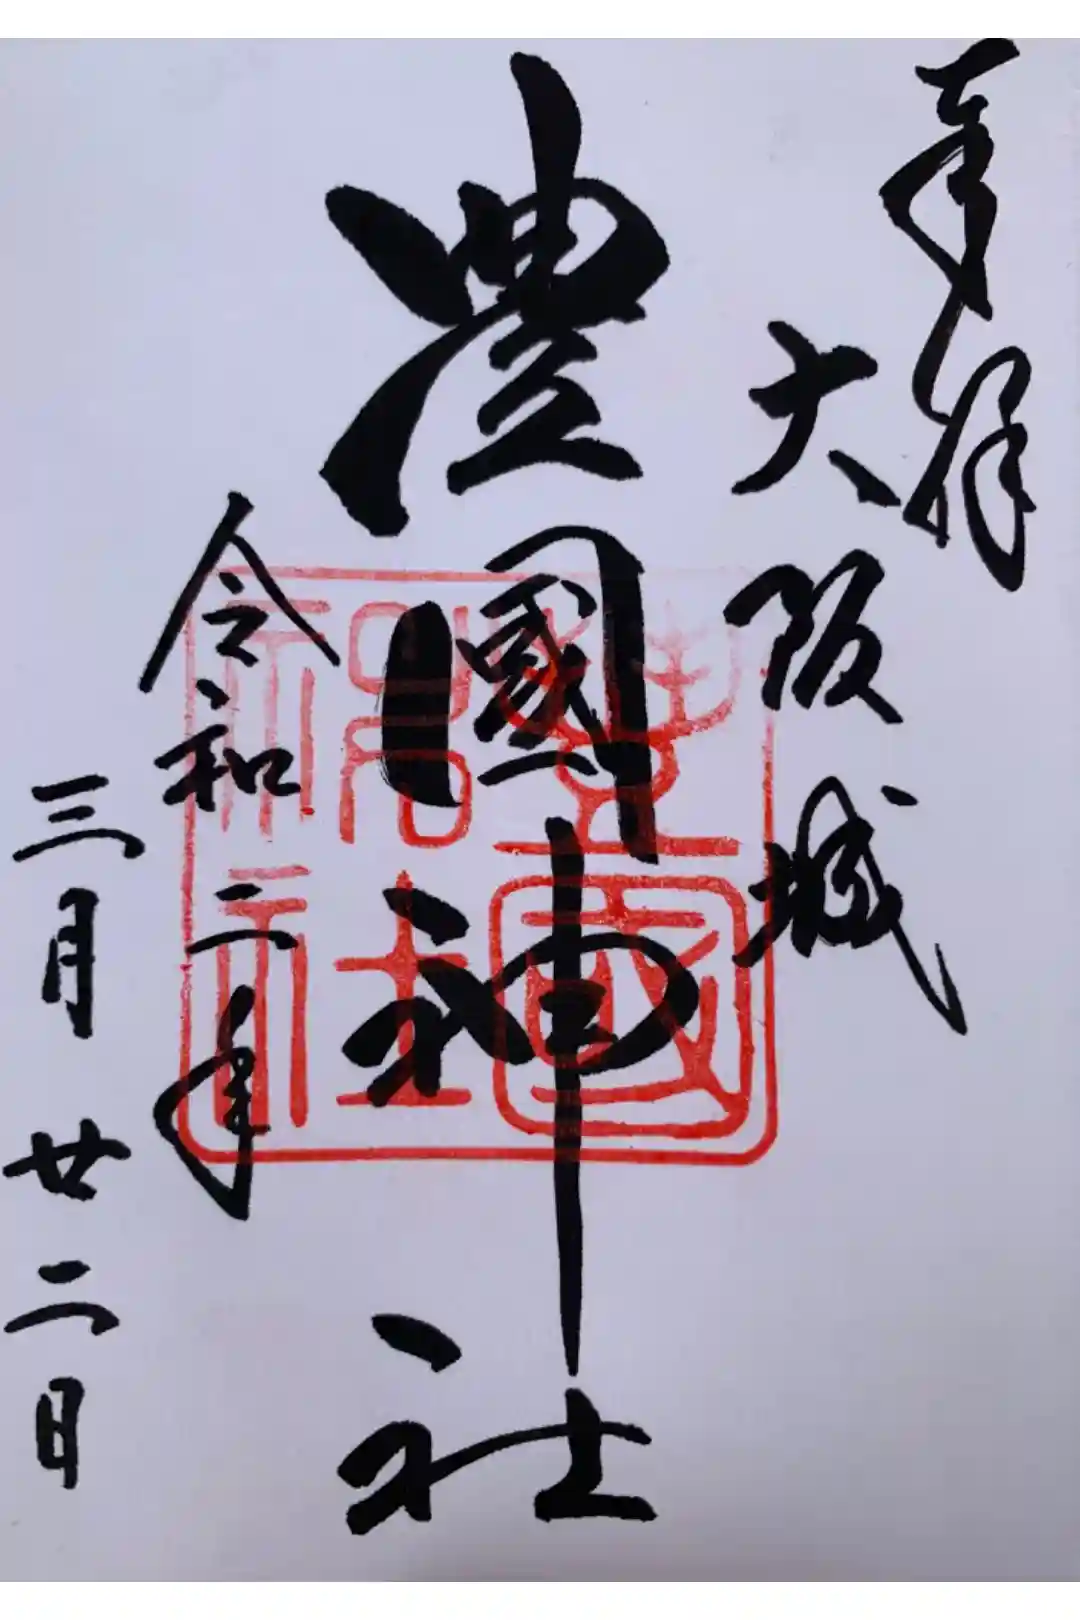 奉拝
大阪城
豊國神社
令和二年
三月廿二日
豊國
神社